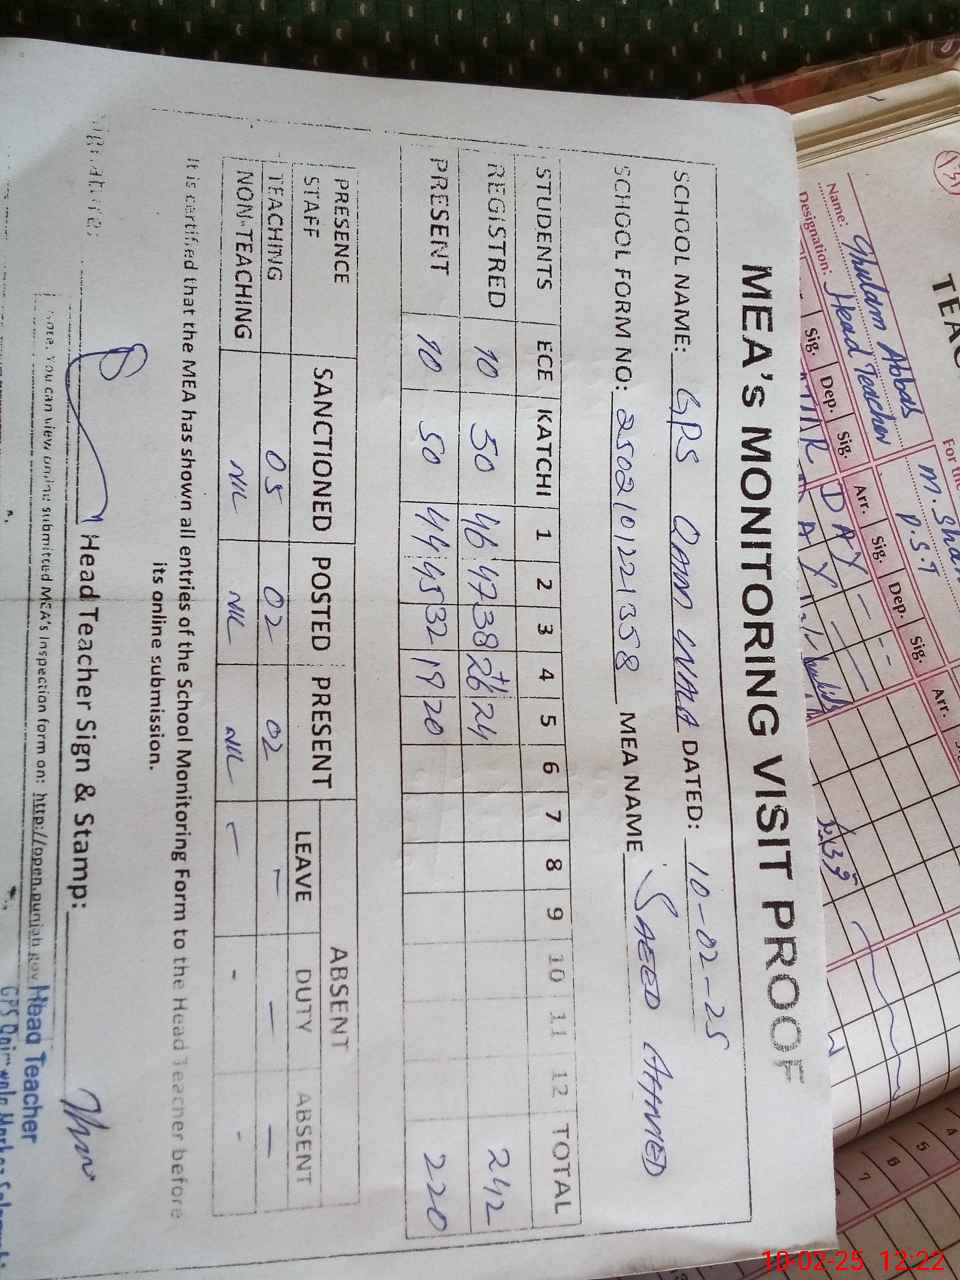 MEA's MONITORING VISIT PROOF
SCHOOL NAME: GPS QAIM WALA DATED: 10-02-25
SCHOOL FORM NO: 2502101221358 MEA NAME SAEED AHMED
STUDENTS ECE KATCHI 1 2 3 4 5 6 7 8 9 10 11 12 TOTAL
REGISTRED 10 50 46 47 38 26 24 242
PRESENT 10 50 44 45 32 19 20 220
PRESENCE STAFF SANCTIONED POSTED PRESENT ABSENT
LEAVE DUTY ABSENT
TEACHING 05 02 02 - - -
NON-TEACHING NIL NIL NIL - - -
It is certified that the MEA has shown all entries of the School Monitoring Form to the Head Teacher before
its online submission.
Signature: Head Teacher Sign & Stamp:
Note: You can view online submitted MEA's Inspection form on: http://open.punjab.gov
Head Teacher
GPS
For the
Name: Ghulam Abbas
Designation: Head Teacher
M.
P.S.T
Sig. Dep. Sig. Arr. Sig. Dep. Sig. Arr.
D A Y
A Y
4
5
6
7
10-02-25 12:22